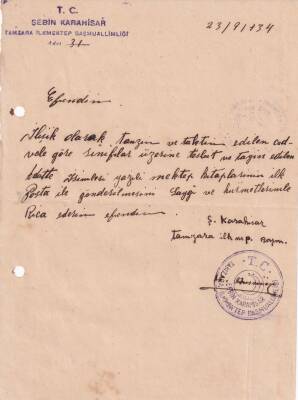 T. C.
ŞEBİN KARAHİSAR
TAMZARA İLKMEKTEP BAŞMUALLİMLİĞİ
31
23/9/934
Efendim
İlişik olarak tanzim ve takdim edilen ced-
vele göre sınıflar üzerine tesbit ve tayin edilen
liste isimleri yazılı mektep kitaplarının ilk
Posta ile gönderilmesini saygı ve hürmetlerimle
Rica ederim efendim.
Ş. Karahisar
Tamzara ilk mp. Başm.
T. C.
ŞEBİN KARAHİSAR